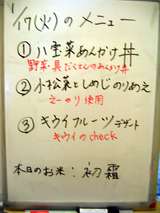 1/17(火)のメニュー
① 八宝菜あんかけ丼
野菜・具だくさんのあんかけ丼
② 小松菜としめじのりあえ
えーのり使用
③ キウイフルーツデザート
キウイのcheck
本日のお米:初霜